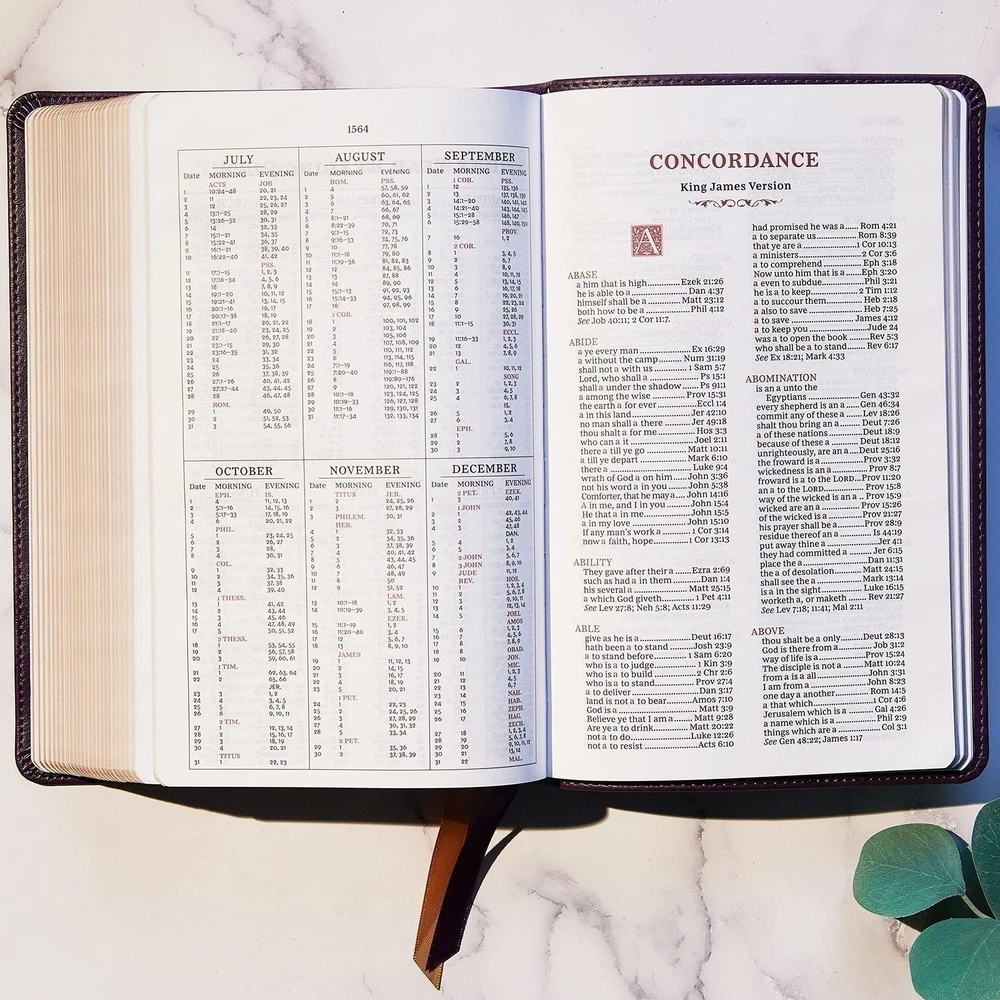 1564
JULY
Date MORNING EVENING
ACTS JOB
1 10:24–48 20, 21
2 11 22, 23, 24
3 12 25, 26, 27
4 13:1–25 28, 29
5 13:26–52 30, 31
6 14 32, 33
7 15:1–21 34, 35
8 15:22–41 36, 37
9 16:1–21 38, 39, 40
10 16:22–40 41, 42
PSS.
11 17:1–15 1, 2, 3
12 17:16–34 4, 5, 6
13 18 7, 8, 9
14 19:1–20 10, 11, 12
15 19:21–41 13, 14, 15
16 20:1–16 16, 17
17 20:17–38 18, 19
18 21:1–17 20, 21, 22
19 21:18–40 23, 24, 25
20 22 26, 27, 28
21 23:1–15 29, 30
22 23:16–35 31, 32
23 24 33, 34
24 25 35, 36
25 26 37, 38, 39
26 27:1–26 40, 41, 42
27 27:27–44 43, 44, 45
28 28 46, 47, 48
ROM.
29 1 49, 50
30 2 51, 52, 53
31 3 54, 55, 56
AUGUST
Date MORNING EVENING
ROM. PSS.
1 4 57, 58, 59
2 5 60, 61, 62
3 6 63, 64, 65
4 7 66, 67
5 8:1–21 68, 69
6 8:22–39 70, 71
7 9:1–15 72, 73
8 9:16–33 74, 75, 76
9 10 77, 78
10 11:1–18 79, 80
11 11:19–36 81, 82, 83
12 12 84, 85, 86
13 13 87, 88
14 14 89, 90
15 15:1–13 91, 92, 93
16 15:14–33 94, 95, 96
17 16 97, 98, 99
1 COR.
18 1 100, 101, 102
19 2 103, 104
20 3 105, 106
21 4 107, 108, 109
22 5 110, 111, 112
23 6 113, 114, 115
24 7:1–19 116, 117, 118
25 7:20–40 119:1–88
26 8 119:89–176
27 9 120, 121, 122
28 10:1–18 123, 124, 125
29 10:19–33 126, 127, 128
30 11:1–16 129, 130, 131
31 11:17–34 132, 133, 134
SEPTEMBER
Date MORNING EVENING
1 COR. PSS.
1 12 135, 136
2 13 137, 138, 139
3 14:1–20 140, 141, 142
4 14:21–40 143, 144, 145
5 15:1–28 146, 147
6 15:29–58 148, 149, 150
PROV.
7 16 1, 2
2 COR.
8 1 3, 4, 5
9 2 6, 7
10 3 8, 9
11 4 10, 11, 12
12 5 13, 14, 15
13 6 16, 17, 18
14 7 19, 20, 21
15 8 22, 23, 24
16 9 25, 26
17 10 27, 28, 29
18 11:1–15 30, 31
ECCL.
19 11:16–33 1, 2, 3
20 12 4, 5, 6
21 13 7, 8, 9
GAL.
22 1 10, 11, 12
SONG
23 2 1, 2, 3
24 3 4, 5
25 4 6, 7, 8
IS.
26 5 1, 2
27 6 3, 4
EPH.
28 1 5, 6
29 2 7, 8
30 3 9, 10
OCTOBER
Date MORNING EVENING
EPH. IS.
1 4 11, 12, 13
2 5:1–16 14, 15, 16
3 5:17–33 17, 18, 19
4 6 20, 21, 22
PHIL.
5 1 23, 24, 25
6 2 26, 27
7 3 28,
8 4 30, 31
COL.
9 1 32, 33
10 2 34, 35, 36
11 3 37, 38
12 4 39, 40
1 THESS.
13 1 41, 42
14 2 43, 44
15 3 45, 46
16 4 47, 48, 49
17 5 50, 51, 52
2 THESS.
18 1 53, 54, 55
19 2 56, 57, 58
20 3 59, 60, 61
1 TIM.
21 1 62, 63, 64
22 2 65, 66
JER.
23 3 1, 2
24 4 3, 4, 5
25 5 6, 7, 8
26 6 9, 10, 11
2 TIM.
27 1 12, 13, 14
28 2 15, 16, 17
29 3 18, 19
30 4 20, 21
TITUS
31 1 22, 23
NOVEMBER
Date MORNING EVENING
TITUS JER.
1 2 24, 25, 26
2 3 27, 28, 29
3 PHILEM. 30, 31
HEB.
4 1 32, 33
5 2 34, 35, 36
6 3 37, 38, 39
7 4 40, 41, 42
8 5 43, 44, 45
9 6 46, 47
10 7 48, 49
11 8 50
12 9 51, 52
LAM.
13 10:1–18 1, 2
14 10:19–39 3, 4, 5
EZEK.
15 11:1–19 1, 2
16 11:20–40 3, 4
17 12 5, 6, 7
18 13 8, 9, 10
JAMES
19 1 11, 12, 13
20 2 14, 15
21 3 16, 17
22 4 18, 19
23 5 20, 21
1 PET.
24 1 22, 23
25 2 24, 25, 26
26 3 27, 28, 29
27 4 30, 31, 32
28 5 33, 34
2 PET.
29 1 35, 36
30 2 37, 38, 39
DECEMBER
Date MORNING EVENING
2 PET. EZEK.
1 3 40, 41
1 JOHN
2 1 42, 43, 44
3 2 45, 46
4 3 47, 48
DAN.
5 4 1, 2
6 5 3, 4
7 2 JOHN 5, 6, 7
8 3 JOHN 8, 9, 10
9 JUDE 11, 12
REV. HOS.
10 1 1, 2, 3, 4
11 2 5, 6, 7, 8
12 3 9, 10, 11
13 4 12, 13, 14
14 5 JOEL
AMOS
15 6 1, 2, 3
16 7 4, 5, 6
17 8 7, 8, 9
18 9 OBAD.
19 10 JON.
MIC.
20 11 1, 2, 3
21 12 4, 5
22 13 6, 7
23 14 NAH.
24 15 HAB.
25 16 ZEPH.
26 17 HAG.
ZECH.
27 18 1, 2, 3, 4
28 19 5, 6, 7, 8
29 20 9, 10, 11, 12
30 21 13, 14
31 22 MAL.
CONCORDANCE
King James Version
A
ABASE
a him that is high Ezek 21:26
he is able to a Dan 4:37
himself shall be a Matt 23:12
both how to be a Phil 4:12
See Job 40:11; 2 Cor 11:7.
ABIDE
a ye every man Ex 16:29
a without the camp Num 31:19
shall not a with us 1 Sam 5:7
Lord, who shall a Ps 15:1
shall a under the shadow Ps 91:1
a among the wise Prov 15:31
the earth a for ever Eccl 1:4
a in this land Jer 42:10
no man shall a there Jer 49:18
thou shalt a for me Hos 3:3
who can a it Joel 2:11
there a till ye go Matt 10:11
a till ye depart Mark 6:10
there a Luke 9:4
wrath of God a on him John 3:36
not his word a in you John 5:38
Comforter, that he may a John 14:16
A in me, and I in you John 15:4
He that a in me John 15:5
a in my love John 15:10
If any man's work a 1 Cor 3:14
now a faith, hope 1 Cor 13:13
ABILITY
They gave after their a Ezra 2:69
such as had a in them Dan 1:4
his several a Matt 25:15
a which God giveth 1 Pet 4:11
See Lev 27:8; Neh 5:8; Acts 11:29
ABLE
give as he is a Deut 16:17
hath been a to stand Josh 23:9
a to stand before 1 Sam 6:20
who is a to judge 1 Kin 3:9
who is a to build 2 Chr 2:6
who is a to stand Prov 27:4
a to deliver Dan 3:17
land is not a to bear Amos 7:10
God is a Matt 3:9
Believe ye that I am a Matt 9:28
Are ye a to drink Matt 20:22
not a to do Luke 12:26
not a to resist Acts 6:10
had promised he was a Rom 4:21
a to separate us Rom 8:39
that ye are a 1 Cor 10:13
a ministers 2 Cor 3:6
a to comprehend Eph 3:18
Now unto him that is a Eph 3:20
a even to subdue Phil 3:21
he is a to keep 2 Tim 1:12
a to succour them Heb 2:18
a also to save Heb 7:25
a to save James 4:12
a to keep you Jude 24
was a to open the book Rev 5:3
who shall be a to stand Rev 6:17
See Ex 18:21; Mark 4:33
ABOMINATION
is an a unto the
Egyptians Gen 43:32
every shepherd is an a Gen 46:34
commit any of these a Lev 18:26
shalt thou bring an a Deut 7:26
a of these nations Deut 18:9
because of these a Deut 18:12
unrighteously, are an a Deut 25:16
the froward is a Prov 3:32
wickedness is an a Prov 8:7
froward is a to the LORD Prov 11:20
an a to the LORD Prov 15:8
way of the wicked is an a Prov 15:9
wicked are an a Prov 15:26
of the wicked is a Prov 21:27
his prayer shall be a Prov 28:9
residue thereof an a Is 44:19
put away thine a Jer 4:1
they had committed a Jer 6:15
place the a Dan 11:31
the a of desolation Matt 24:15
shall see the a Mark 13:14
is a in the sight Luke 16:15
worketh a, or maketh Rev 21:27
See Lev 7:18; 11:41; Mal 2:11
ABOVE
thou shalt be a only Deut 28:13
God is there from a Job 31:2
way of life is a Prov 15:24
The disciple is not a Matt 10:24
from a is a all John 3:31
I am from a John 8:23
one day a another Rom 14:5
a that which 1 Cor 4:6
Jerusalem which is a Gal 4:26
a name which is a Phil 2:9
things which are a Col 3:1
See Gen 48:22; James 1:17